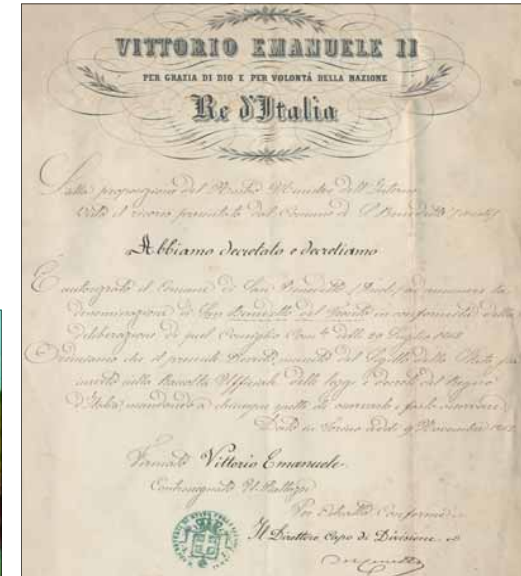 VITTORIO EMANUELE II
PER GRAZIA DI DIO E PER VOLONTÀ DELLA NAZIONE
Re d'Italia
Sulla proposizione del Nostro Ministro dell'Interno
Visto il ricorso presentato dal Comune di S. Benedetto
Abbiamo decretato e decretiamo
È autorizzato il Comune di San Benedetto ad assumere la
denominazione di San Benedetto del Tronto in conformità della
deliberazione di quel Consiglio Com.le delle 20 Luglio
Ordiniamo che il presente Decreto, munito del Sigillo dello Stato, sia
inserto nella Raccolta Ufficiale delle leggi e decreti del Regno
d'Italia, mandando a chiunque spetti di osservarlo e farlo osservare.
Dato in Torino addì 9 Novembre 1862
Firmato Vittorio Emanuele
Contrassegnato U. Rattazzi
Per Estratto Conforme
Il Direttore Capo di Divisione